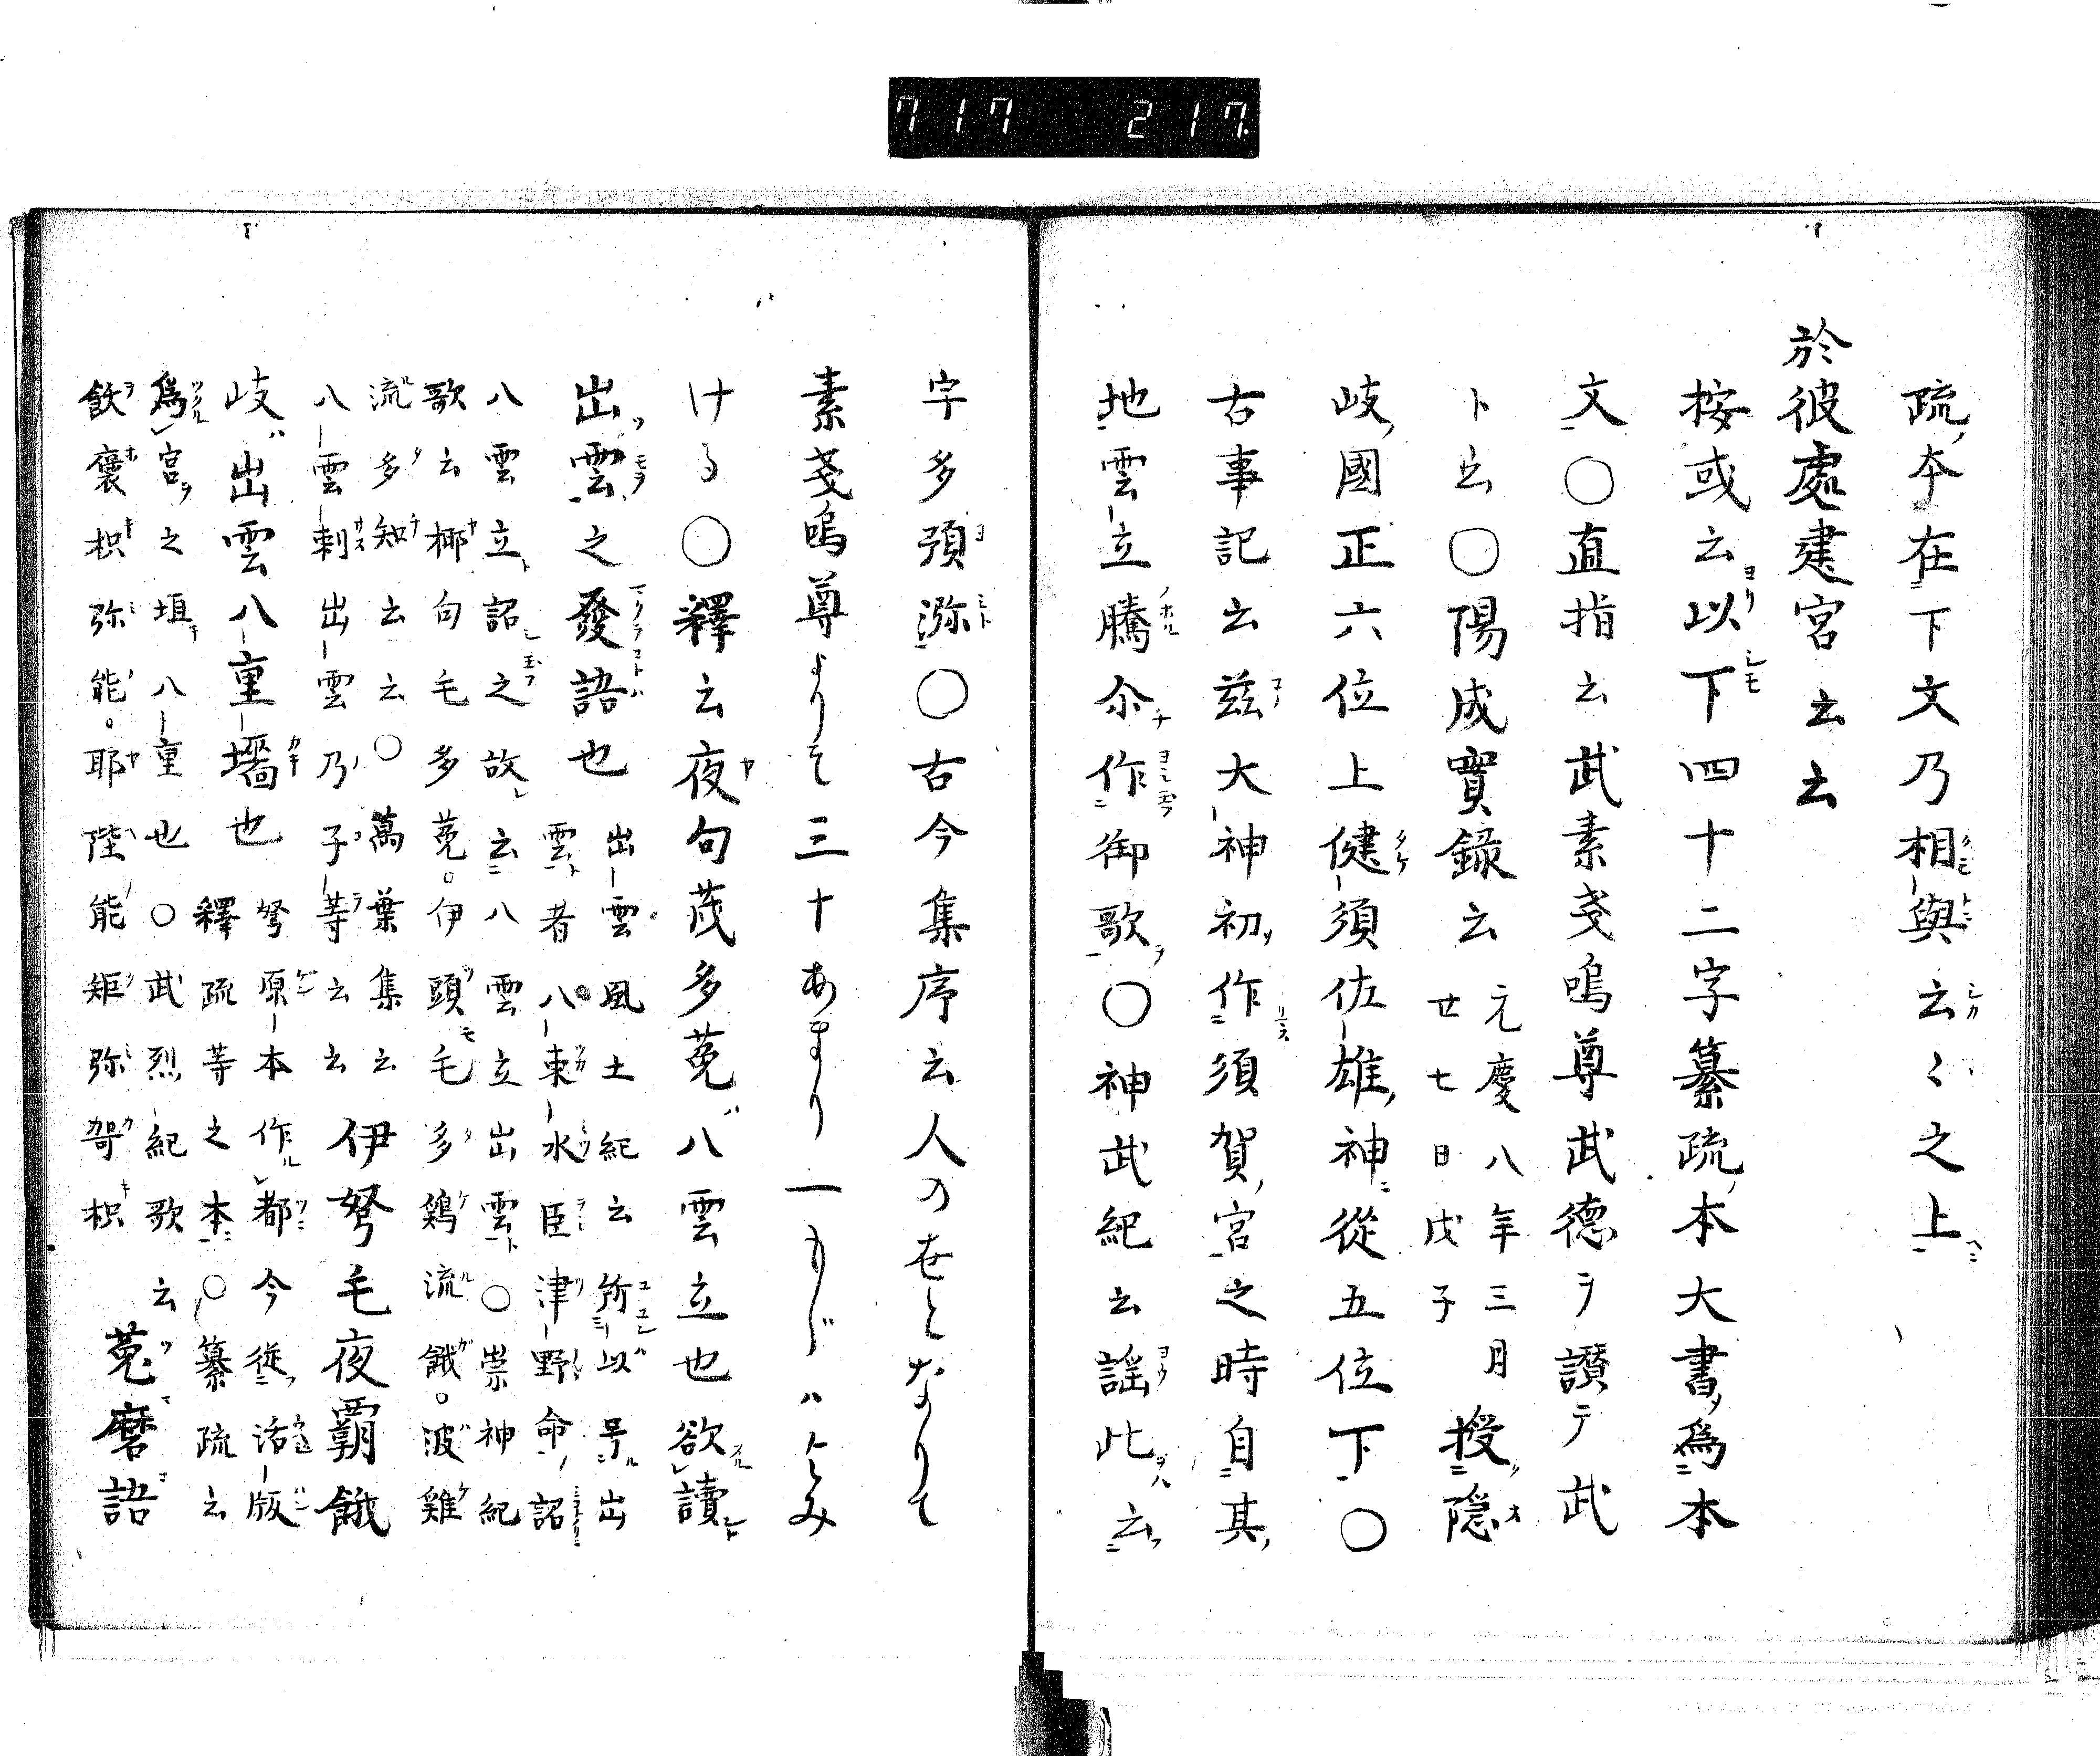 717 217
疏本在下文乃相與云〻之上
於彼處建宮云云
按或云以下四十二字纂疏本大書爲本
文○直指云武素戔嗚尊武德ヲ讃テ武
ト云○陽成實錄云元慶八年三月廿七日戊子授隠
岐國正六位上健須佐雄神從五位下○
古事記云茲大神初作須賀宮之時自其
地雲立騰尒作御歌○神武紀云謡此云
宇多預瀰○古今集序云人の世となりて
素戔嗚尊よりそ三十あまり一もじハよみ
ける○釋云夜句茂多菟八雲立也欲讀
出雲之發語也
出雲風土紀云所以号出
雲者八束水臣津野命詔
八雲立詔之故云八雲立出雲○崇神紀
歌云椰句毛多菟伊頭毛多鶏流餓波雞
流多知云云○萬葉集云
八雲刺出雲乃子等云云
伊弩毛夜覇餓
岐出雲八重墻也
弩原本作都今從活版
釋疏等之本○纂疏云
爲宮之垣八重也○武烈紀歌云
飫褒枳弥能耶陛能矩弥哿枳
菟磨語